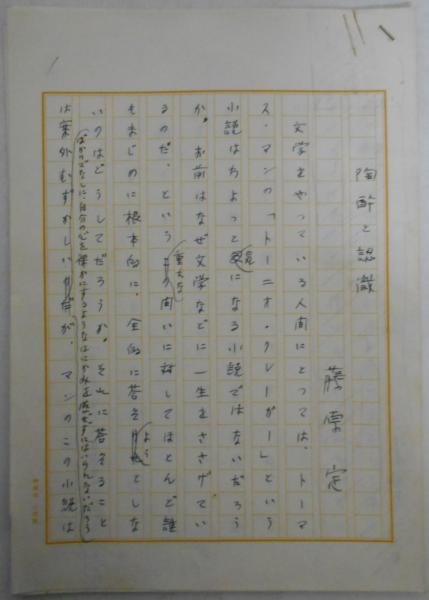 陶酔と認識
藤原定
文学をやっている人間にとっては、トーマ
ス・マンの「トーニオ・クレーガー」という
小説はちょっと気になる小説ではないだろう
か。お前はなぜ文学などに一生をささげてい
るのだ、という重大な問いに対してほとんど誰
もまじめに根本的に、全的に答えようとしな
いのはどうしてだろうか。それに答えること
ばかりでなしに、自分の心を
は案外むずかしいだが、マンのこの小説は